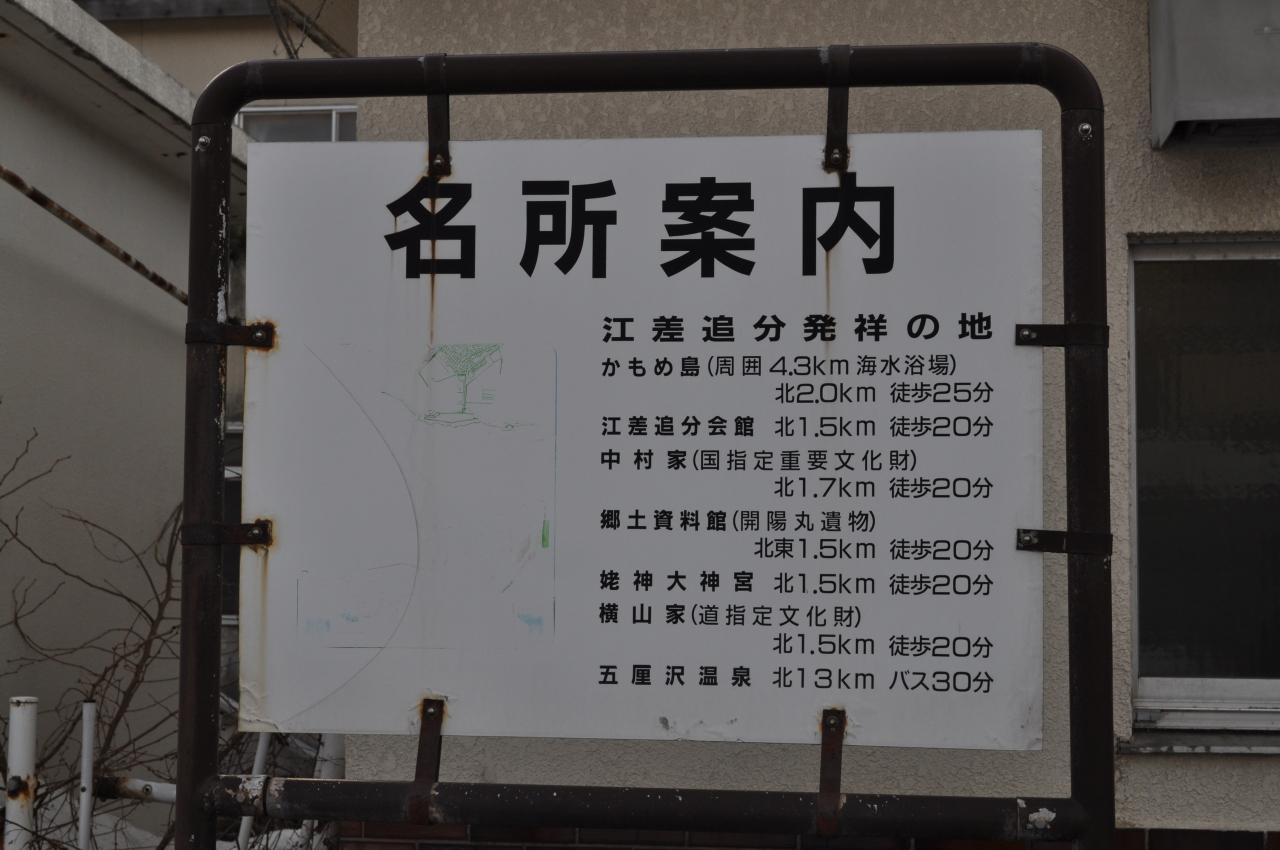 名所案内
江差追分発祥の地
かもめ島(周囲4.3km海水浴場)
北2.0km 徒歩25分
江差追分会館 北1.5km 徒歩20分
中村家(国指定重要文化財)
北1.7km 徒歩20分
郷土資料館(開陽丸遺物)
北東1.5km 徒歩20分
姥神大神宮 北1.5km 徒歩20分
横山家(道指定文化財)
北1.5km 徒歩20分
五厘沢温泉 北13km バス30分